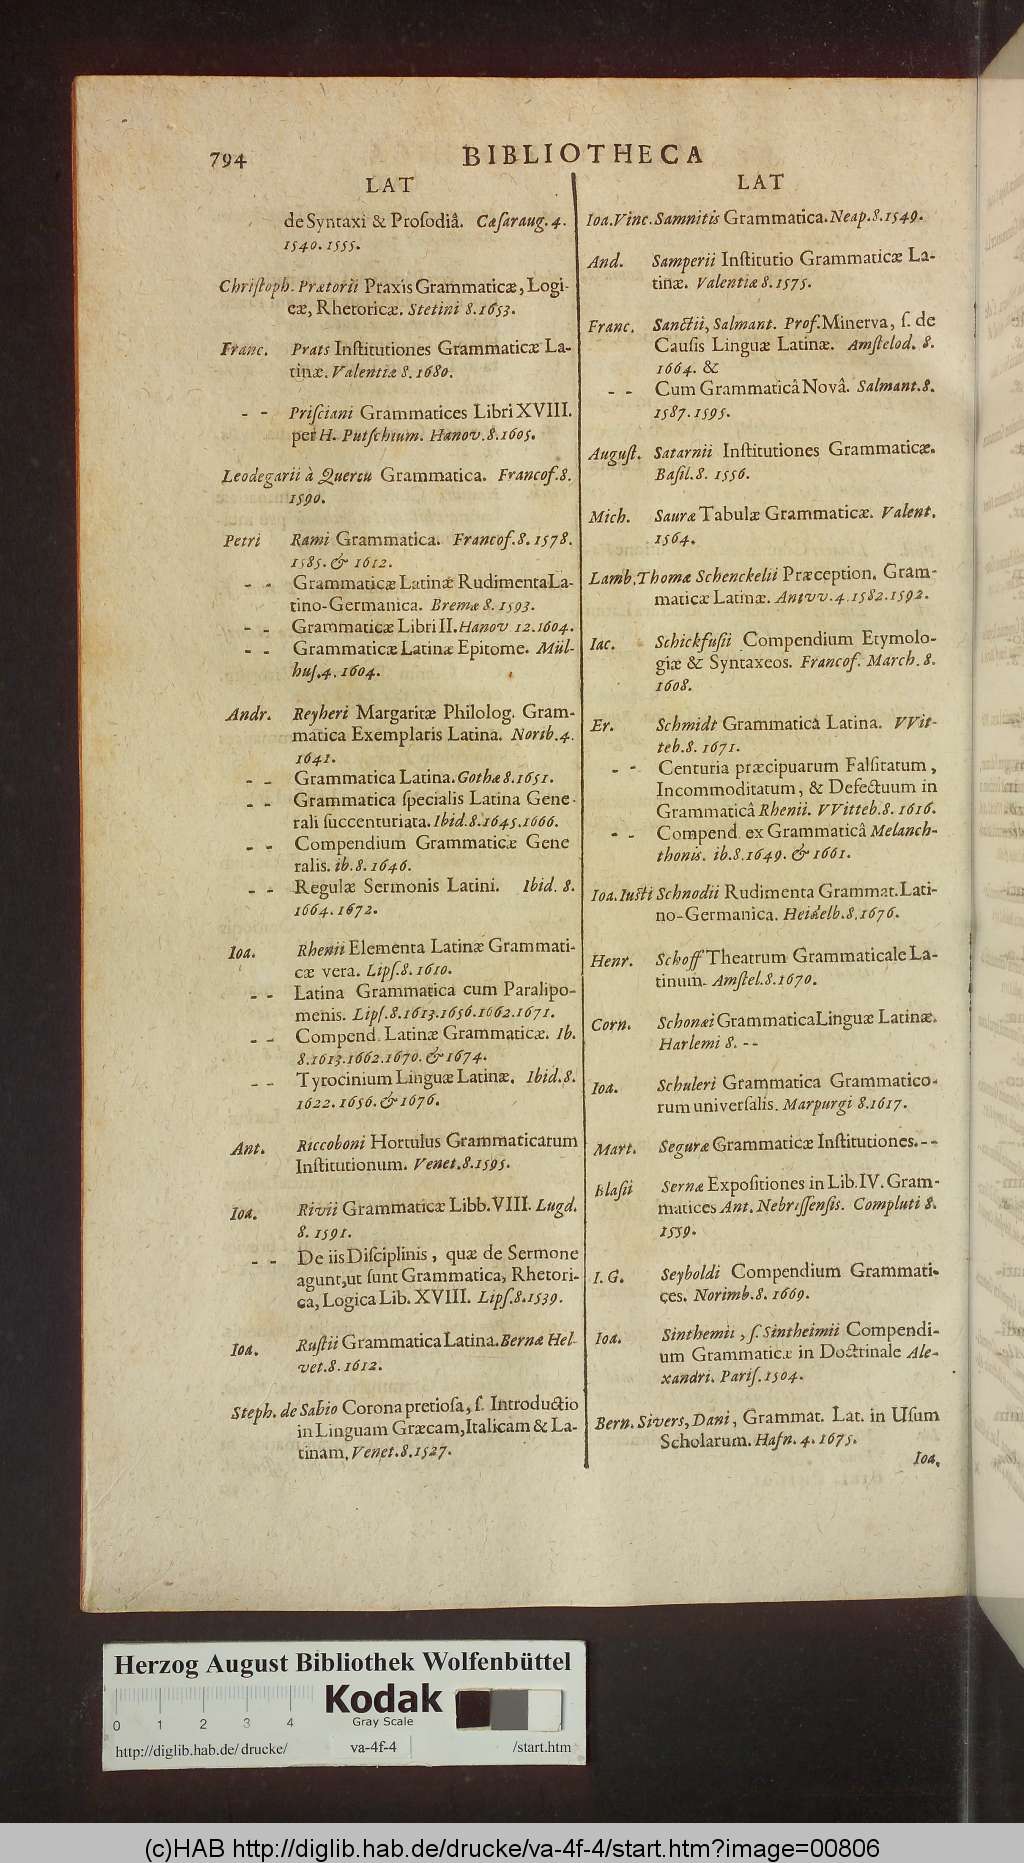 794
BIBLIOTHECA
LAT
de Syntaxi & Prosodiâ. Cæsaraug. 4.
1540. 1555.
Christoph. Prætorii Praxis Grammaticæ, Logi-
cæ, Rhetoricæ. Stetini 8. 1653.
Franc. Prats Institutiones Grammaticæ La-
tinæ. Valentiæ 8. 1680.
- - Prisciani Grammatices Libri XVIII.
per H. Putschium. Hanov. 8. 1605.
Leodegarii à Quercu Grammatica. Francof. 8.
1590.
Petri Rami Grammatica. Francof. 8. 1578.
1585. & 1612.
- - Grammaticæ Latinæ Rudimenta La-
tino-Germanica. Bremæ 8. 1593.
- - Grammaticæ Libri II. Hanov 12. 1604.
- - Grammaticæ Latinæ Epitome. Mül-
hus. 4. 1604.
Andr. Reyheri Margaritæ Philolog. Gram-
matica Exemplaris Latina. Norib. 4.
1641.
- - Grammatica Latina. Gothæ 8. 1651.
- - Grammatica specialis Latina Gene-
rali succenturiata. Ibid. 8. 1645. 1666.
- - Compendium Grammaticæ Gene
ralis. ib. 8. 1646.
- - Regulæ Sermonis Latini. Ibid. 8.
1664. 1672.
Ioa. Rhenii Elementa Latinæ Grammati-
cæ vera. Lips. 8. 1610.
- - Latina Grammatica cum Paralipo-
menis. Lips. 8. 1613. 1656. 1662. 1671.
- - Compend. Latinæ Grammaticæ. Ib.
8. 1613. 1662. 1670. & 1674.
- - Tyrocinium Linguæ Latinæ. Ibid. 8.
1622. 1656. & 1676.
Ant. Riccoboni Hortulus Grammaticarum
Institutionum. Venet. 8. 1595.
Ioa. Rivii Grammaticæ Libb. VIII. Lugd.
8. 1591.
- - De iis Disciplinis, quæ de Sermone
agunt, ut sunt Grammatica, Rhetori-
ca, Logica Lib. XVIII. Lips. 8. 1539.
Ioa. Rustii Grammatica Latina. Bernæ Hel-
vet. 8. 1612.
Steph. de Sabio Corona pretiosa, s. Introductio
in Linguam Græcam, Italicam & La-
tinam, Venet. 8. 1527.
LAT
Ioa. Vinc. Samnitis Grammatica. Neap. 8. 1549.
And. Samperii Institutio Grammaticæ La-
tinæ. Valentiæ 8. 1575.
Franc. Sanctii, Salmant. Prof. Minerva, s. de
Causis Linguæ Latinæ. Amstelod. 8.
1664. &
- - Cum Grammaticâ Novâ. Salmant. 8.
1587. 1595.
August. Satarnii Institutiones Grammaticæ.
Basil. 8. 1556.
Mich. Sauræ Tabulæ Grammaticæ. Valent.
1564.
Lamb. Thomæ Schenckelii Præception. Gram-
maticæ Latinæ. Antvv. 4. 1582. 1592.
Iac. Schickfusii Compendium Etymolo-
giæ & Syntaxeos. Francof. March. 8.
1608.
Er. Schmidt Grammatica Latina. VVit-
teb. 8. 1671.
- - Centuria præcipuarum Falsitatum,
Incommoditatum, & Defectuum in
Grammaticâ Rhenii. VVitteb. 8. 1616.
- - Compend. ex Grammaticâ Melanch-
thonis. ib. 8. 1649. & 1661.
Ioa. Iusti Schnodii Rudimenta Grammat. Lati-
no-Germanica. Heidelb. 8. 1676.
Henr. Schoff Theatrum Grammaticale La-
tinum. Amstel. 8. 1670.
Corn. Schonæi Grammatica Linguæ Latinæ.
Harlemi 8. - -
Ioa. Schuleri Grammatica Grammatico-
rum universalis. Marpurgi 8. 1617.
Mart. Seguræ Grammaticæ Institutiones. - -
Blasii Sernæ Expositiones in Lib. IV. Gram-
matices Ant. Nebrissensis. Compluti 8.
1559.
I. G. Seyboldi Compendium Grammati-
ces. Norimb. 8. 1669.
Ioa. Sinthemii, s. Sintheimii Compendi-
um Grammaticæ in Doctrinale Ale-
xandri. Paris. 1504.
Bern. Sivers, Dani, Grammat. Lat. in Usum
Scholarum. Hafn. 4. 1675.
Ioa.
Herzog August Bibliothek Wolfenbüttel
Kodak
Gray Scale
0 1 2 3 4
http://diglib.hab.de/drucke/ va-4f-4 /start.htm
(c)HAB http://diglib.hab.de/drucke/va-4f-4/start.htm?image=00806